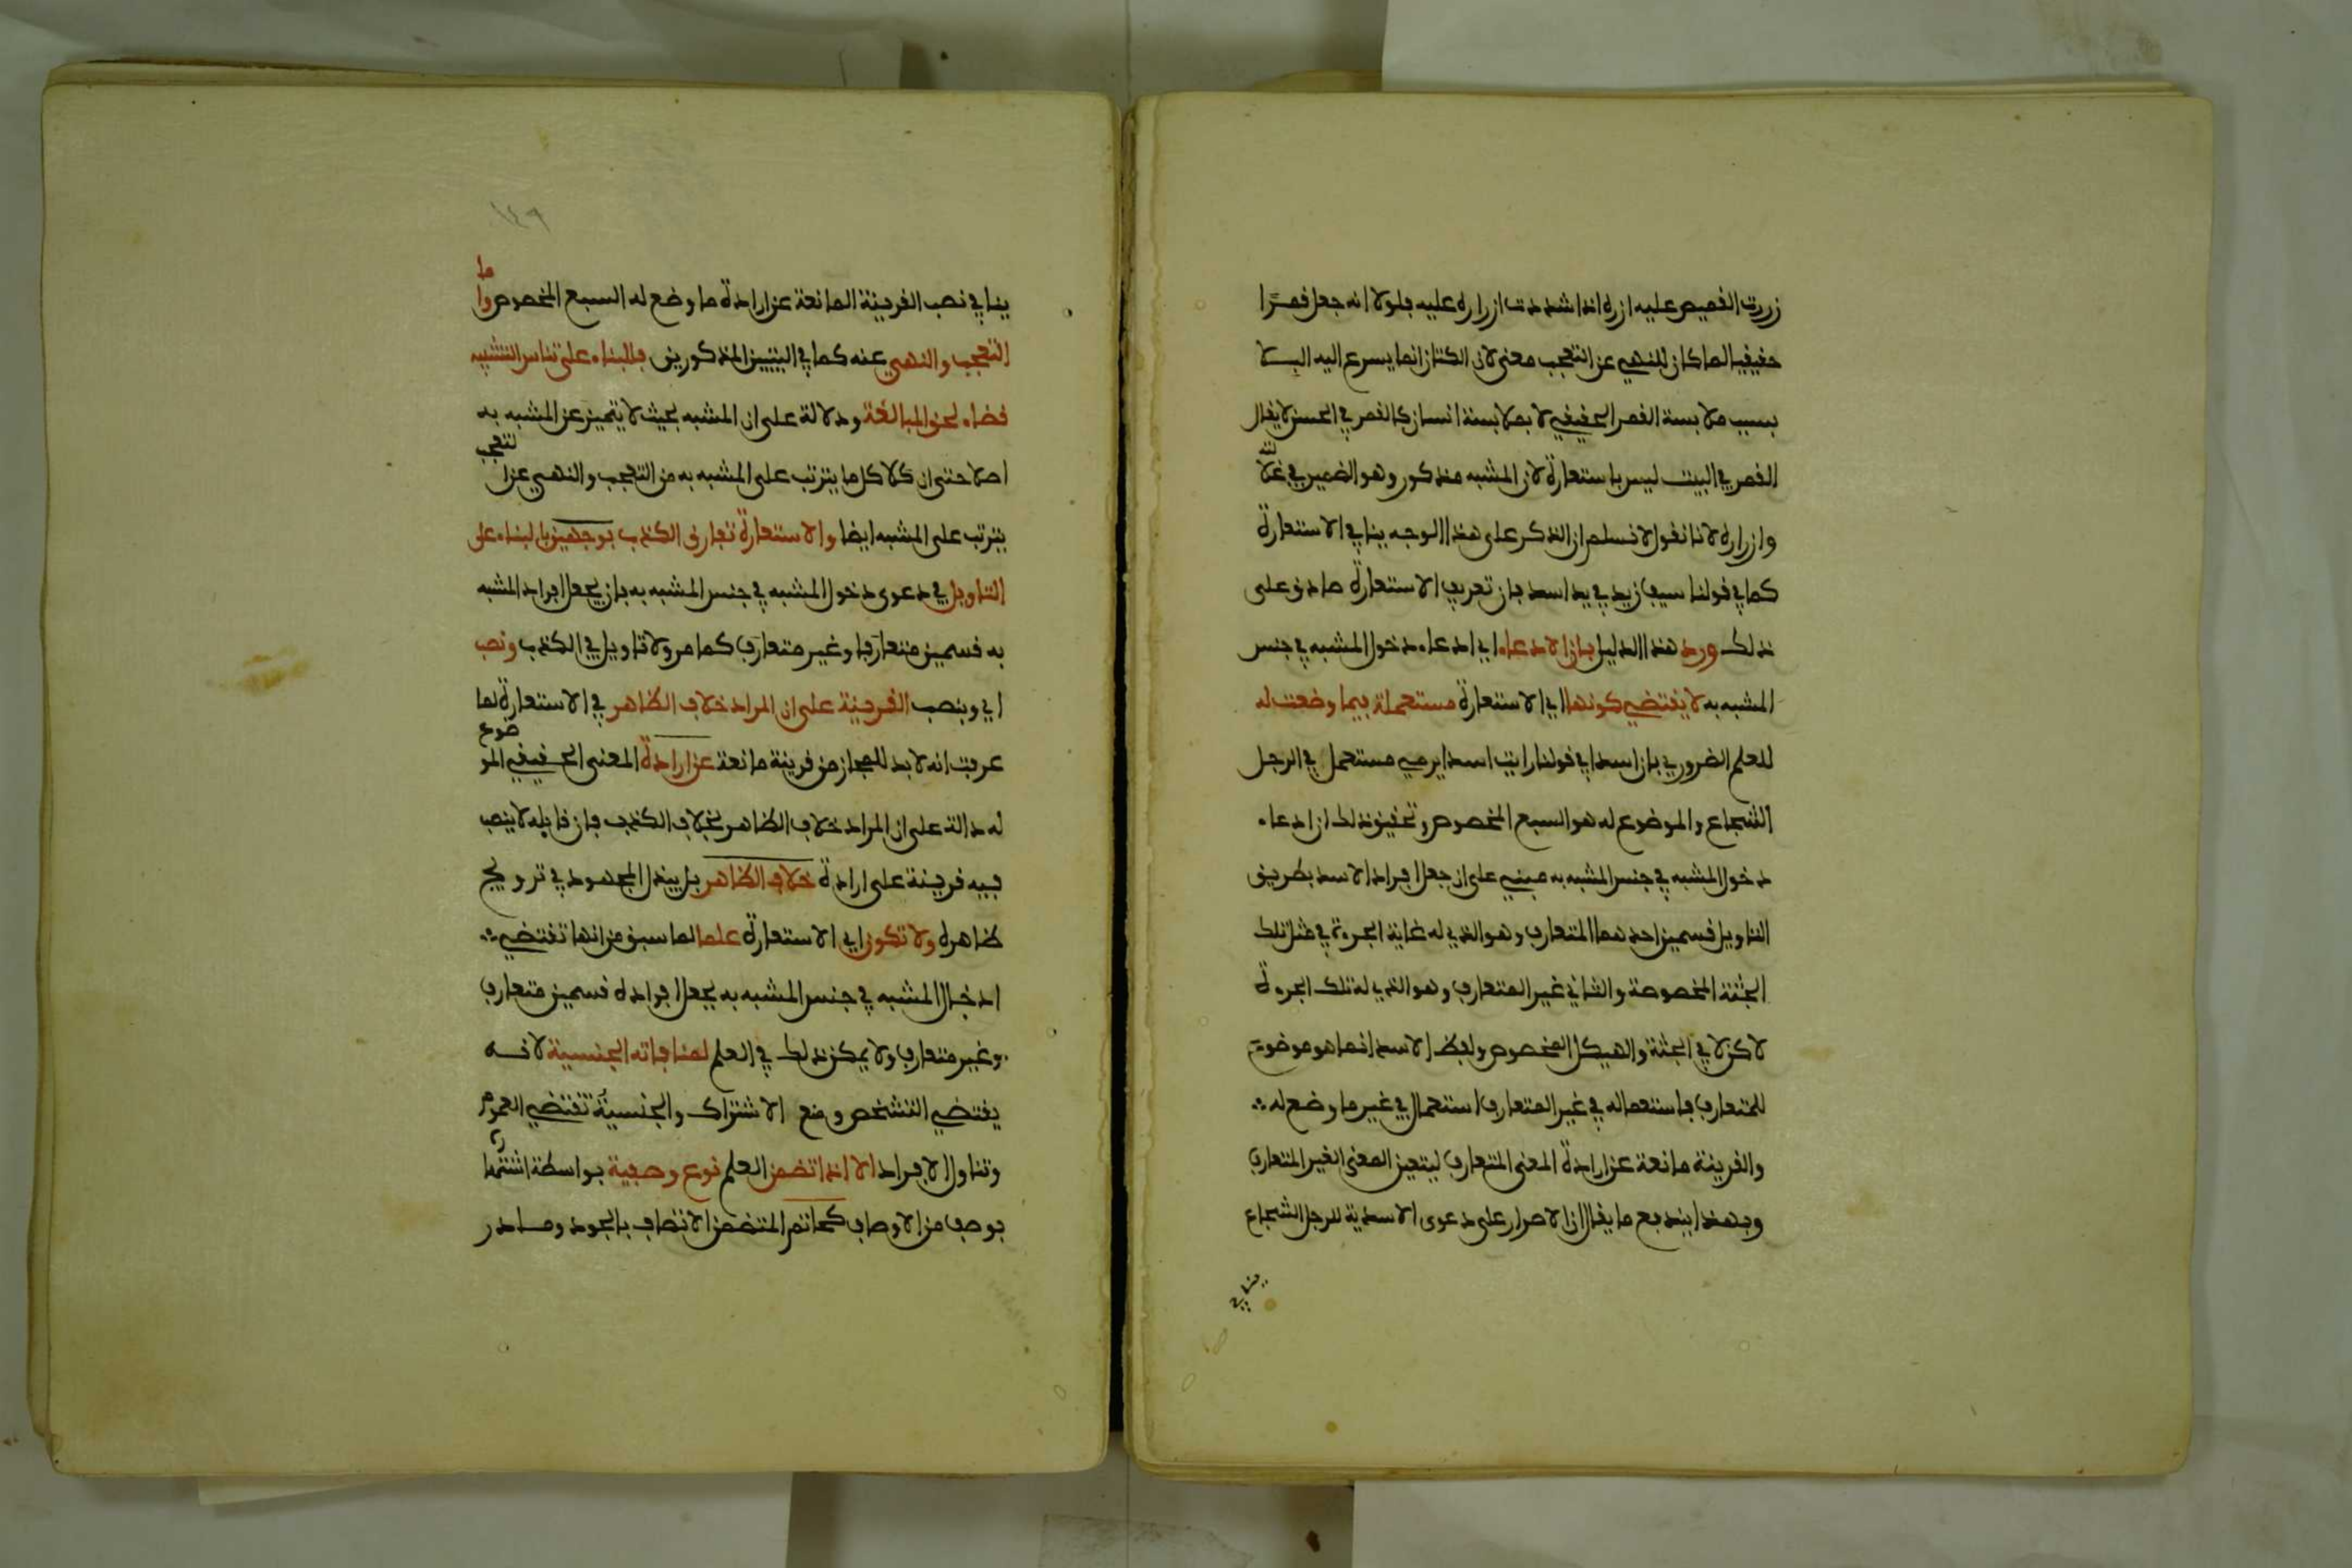 زررت القميص عليه ازره اذا شددت ازراره عليه فلولا انه جعل قمرًا
حقيقيا لما كان للنهي عن التعجب معنى لان الكتان انما يسرع اليه البلا
بسبب ملابسة القمر الحقيقي لا بملابسة انسان كالقمر في الحسن لا يقال
القمر في البيت ليس باستعارة لان المشبه مذكور وهو الضمير في غلالته
وازراره لانا نقول لا نسلم ان الذكر على هذا الوجه ينافي الاستعارة
كما في قولنا سيف زيد في يد اسد فان تعريف الاستعارة صادق على
ذلك ورد هذا الدليل بان الادعاء اي ادعاء دخول المشبه في جنس
المشبه به لا يقتضي كونها اي الاستعارة مستعملة فيما وضعت له
للعلم الضروري بان اسدا في قولنا رايت اسدا يرمي مستعمل في الرجل
الشجاع والموضوع له هو السبع المخصوص وتحقيق ذلك ان ادعاء
دخول المشبه في جنس المشبه به مبني على ان جعل افراد الاسد بطريق
التاويل قسمين احدهما المتعارف وهو الذي له غاية الجرءة في مثل تلك
الجثة المخصوصة والثاني غير المتعارف وهو الذي له تلك الجرءة
لاكن لا في الجثة والهيكل المخصوص ولفظ الاسد انما هو موضوع
للمتعارف فاستعماله في غير المتعارف استعمال في غير ما وضع له
والقرينة مانعة عن ارادة المعنى المتعارف ليتعين المعنى الغير المتعارف
وبهذا يندفع ما يقال ان الاصرار على دعوى الاسدية للرجل الشجاع
ينافي
١٤٩
ينافي نصب القرينة المانعة عن ارادة ما وضع له السبع المخصوص واما
التعجب والنهي عنه كما في البيتين المذكورين فللبناء على تناسي التشبيه
قضاء لحق المبالغة ودلالة على ان المشبه بحيث لا يتميز عن المشبه به
اصلا حتى ان كلا كل ما يترتب على المشبه به من التعجب والنهي عن التعجب
يترتب على المشبه ايضا والاستعارة تفارق الكذب بوجهين بالبناء على
التاويل في دعوى دخول المشبه في جنس المشبه به بان يجعل افراد المشبه
به قسمين متعارفا وغير متعارف كما مر ولا تاويل في الكذب ونصب
اي وبنصب القرينة على ان المراد خلاف الظاهر في الاستعارة لما
عرفت انه لا بد للمجاز من قرينة مانعة عن ارادة المعنى الحقيقي الموضوع
له دالة على ان المراد خلاف الظاهر بخلاف الكذب فان قايله لا ينصب
فيه قرينة على ارادة خلاف الظاهر بل يبذل المجهود في ترويج
ظاهره ولا تكون اي الاستعارة علما لما سبق من انها تقتضي
ادخال المشبه في جنس المشبه به بجعل افراده قسمين متعارف
وغير متعارف ولا يمكن ذلك في العلم لمنافاته الجنسية لانه
يقتضي التشخص ومنع الاشتراك والجنسية تقتضي العموم
وتناول الافراد الا اذا تضمن العلم نوع وصفية بواسطة اشتهاره
بوصف من الاوصاف كحاتم المتضمن الاتصاف بالجود ومادر